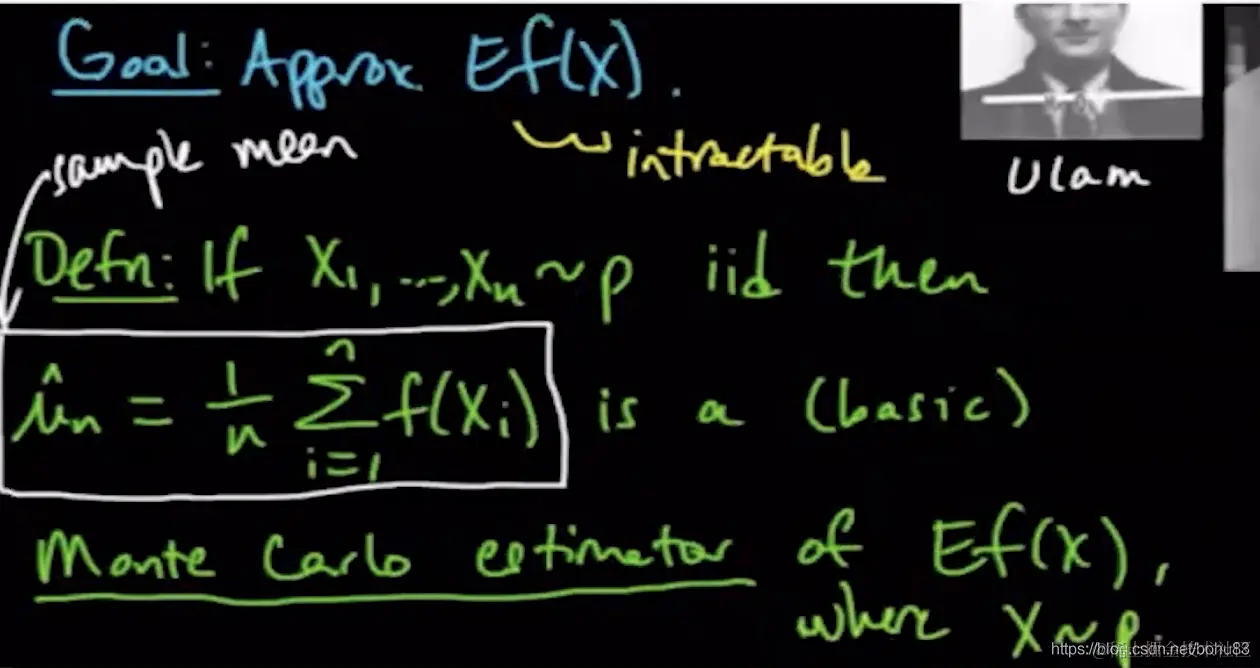 Goal: Approx Ef(X).
intractable
Ulam
sample mean
Defn: If X₁, ..., Xₙ ~ p iid then
μ̂ₙ = 1/n ∑ᵢ₌₁ⁿ f(Xᵢ) is a (basic)
Monte Carlo estimator of Ef(X),
where X ~ p.
https://blog.csdn.net/bohu83